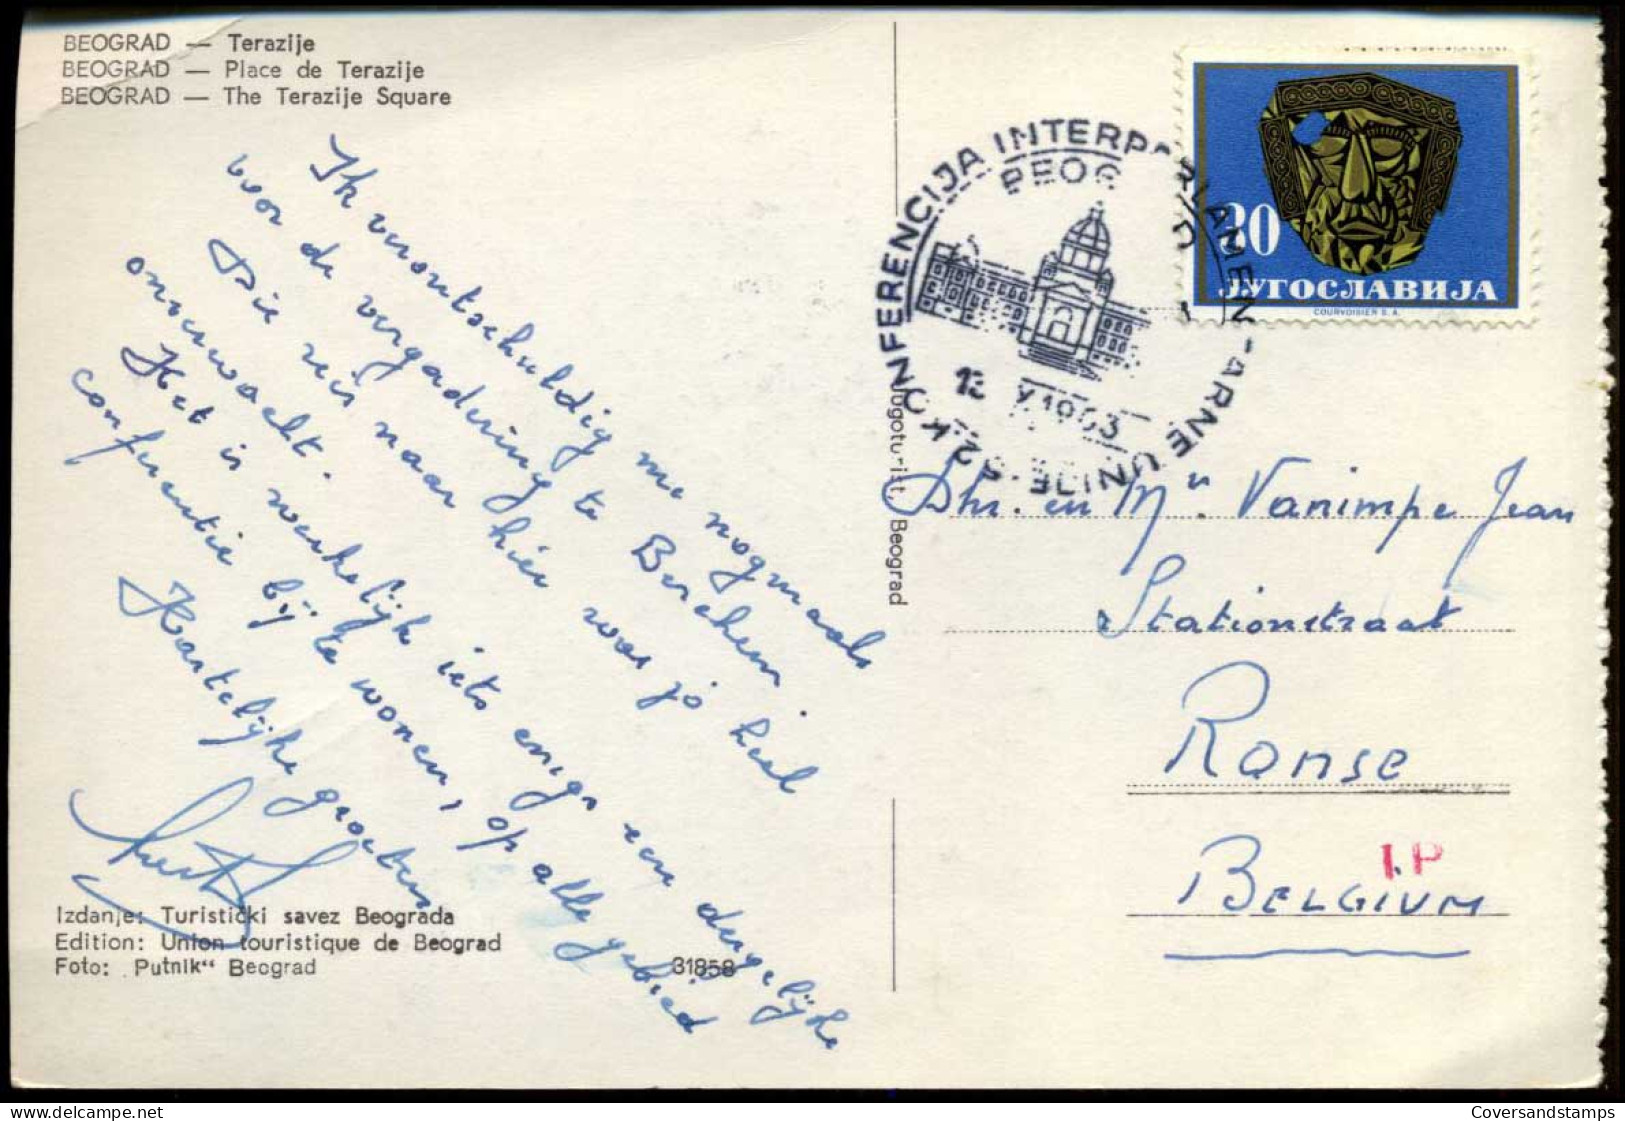 BEOGRAD — Terazije
BEOGRAD — Place de Terazije
BEOGRAD — The Terazije Square
Ik verontschuldig me nogmaals
voor de vergadering te Berchem
Die reis naar hier was jo heel
onverwacht.
Het is werkelijk iets enigs een dergelijke
conferentie bij te wonen, op alle gebied
Hartelijke groeten
Izdanje: Turistički savez Beograda
Edition: Union touristique de Beograd
Foto: „Putnik“ Beograd
31858
Jugoturist, Beograd
52. KONFERENCIJA INTERPARLAMENTARNE UNIJE
BEOGRAD
1963
30
ЈУГОСЛАВИЈА
COURVOISIER S.A.
Dhr. en Mᵛ. Vanimpe Jean
Stationstraat
Ronse
BELGIUM
I.P
Coversandstamps